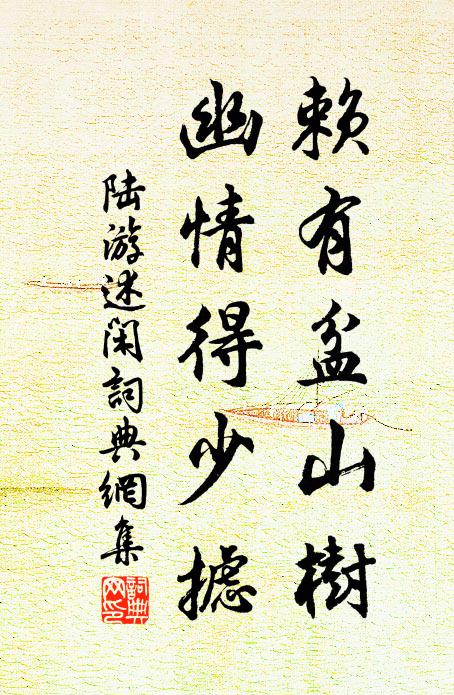 賴有盆山樹
幽情得少攄
陸游述闲詞典網集
詞典
网印